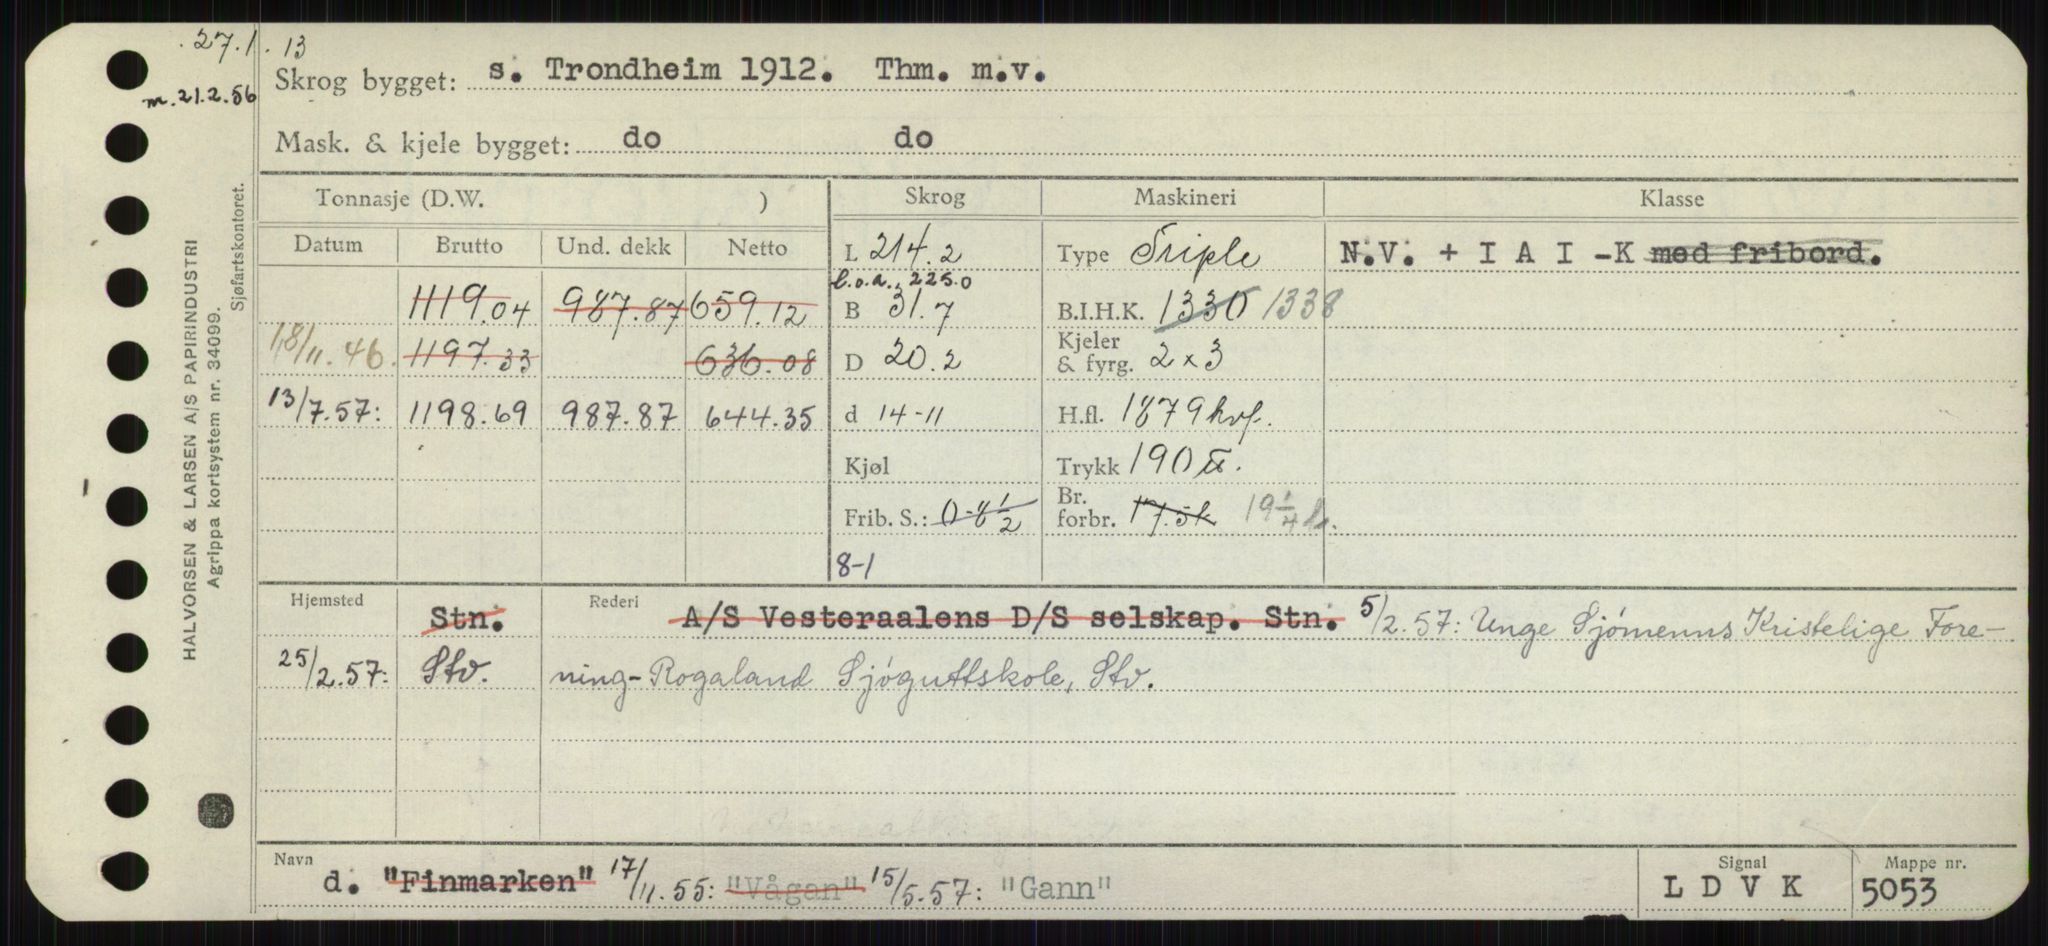 27.1.13
m. 21.2.56
Skrog bygget: s. Trondheim 1912. Thm. m.v.
Mask. & kjele bygget: do do
HALVORSEN & LARSEN A/S PAPIRINDUSTRI
Agrippa kortsystem nr. 34099.
Sjøfartskontoret.
Tonnasje (D.W. ) Skrog Maskineri Klasse
Datum Brutto Und. dekk Netto
L 214.2 Type Triple N.V. + I A I -K med fribord.
l.o.a. 225.0
1119.04 987.87 659.12 B 31.7 B.I.H.K. 1330 1338
18/11.46. 1197.33 636.08 D 20.2 Kjeler & fyrg. 2 x 3
13/7.57: 1198.69 987.87 644.35 d 14-11 H.fl. 1879 kvf.
Kjøl Trykk 190 ℔.
Frib. S.: 0-8 1/2 Br. forbr. 17.5k 19 1/4 h.
8-1
Hjemsted Stn. Rederi A/S Vesteraalens D/S selskap. Stn. 5/2.57: Unge Sjømenns Kristelige Fore-
25/2.57: Stv. ning-Rogaland Sjøguttskole, Stv.
Navn d. "Finmarken" 17/11.55: "Vågan" 15/5.57: "Gann" Signal L D V K Mappe nr. 5053